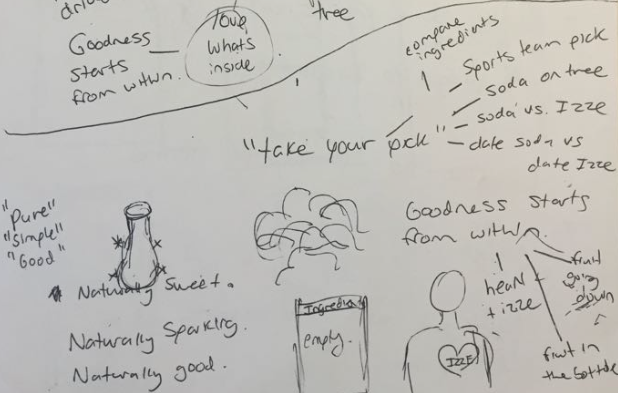 "tree
love
whats
inside
Goodness
starts
from within.
compare
ingredients
Sports team pick
soda on tree
soda vs. Izze
date soda vs
date Izze
"take your pick"
"Pure"
"Simple"
"Good"
Naturally Sweet.
Naturally Sparkling.
Naturally good.
Ingredients
empty.
Goodness starts
from within.
heart
+ izze
fruit
going
down
fruit in
the bottle
IZZE